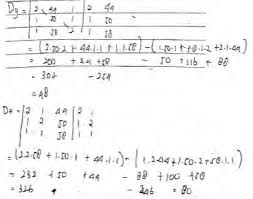 Dy = | 2 44 1 | 2 44
| 1 50 1 | 1 50
| 1 58 2 | 1 58
= (2.50.2 + 44.1.1 + 1.1.58) - (1.50.1 + 58.1.2 + 2.1.44)
= 200 + 44 + 58 - 50 + 116 + 88
= 302 - 254
= 48
Dz = | 2 1 44 | 2 1
| 1 2 50 | 1 2
| 1 1 58 | 1 1
= (2.2.58 + 1.50.1 + 44.1.1) - (1.2.44 + 1.50.2 + 58.1.1)
= 232 + 50 + 44 - 88 + 100 + 58
= 326 - 246 = 80